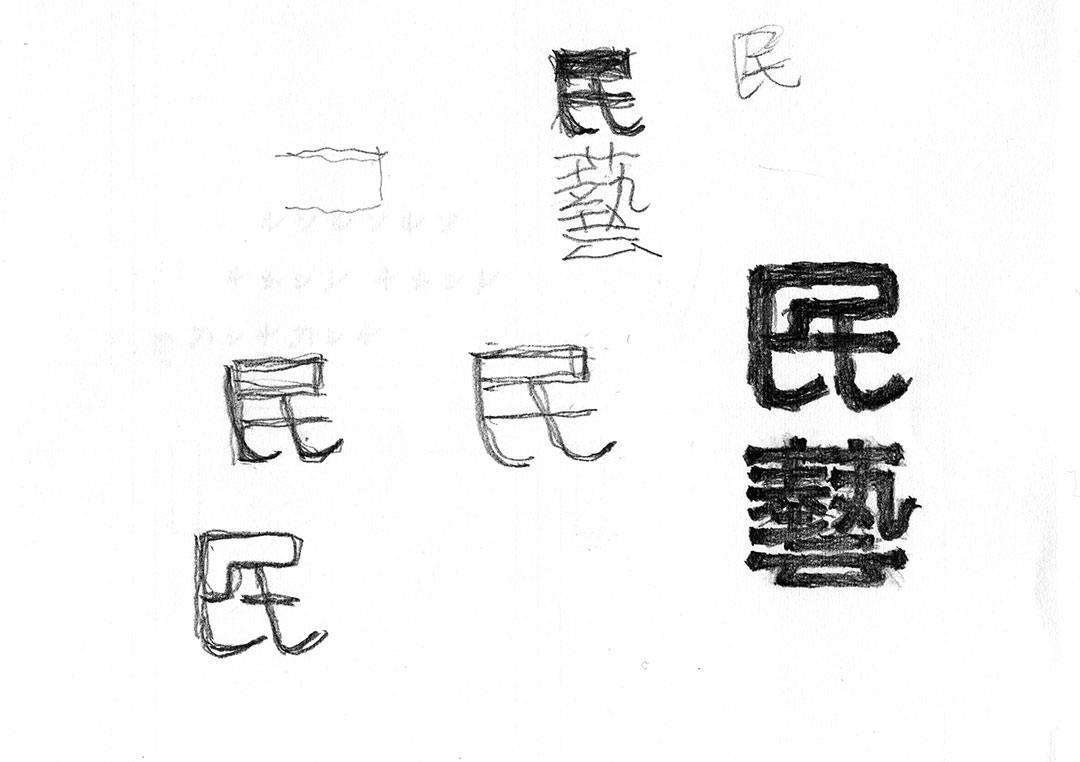 民
民藝
民藝
民
民
民